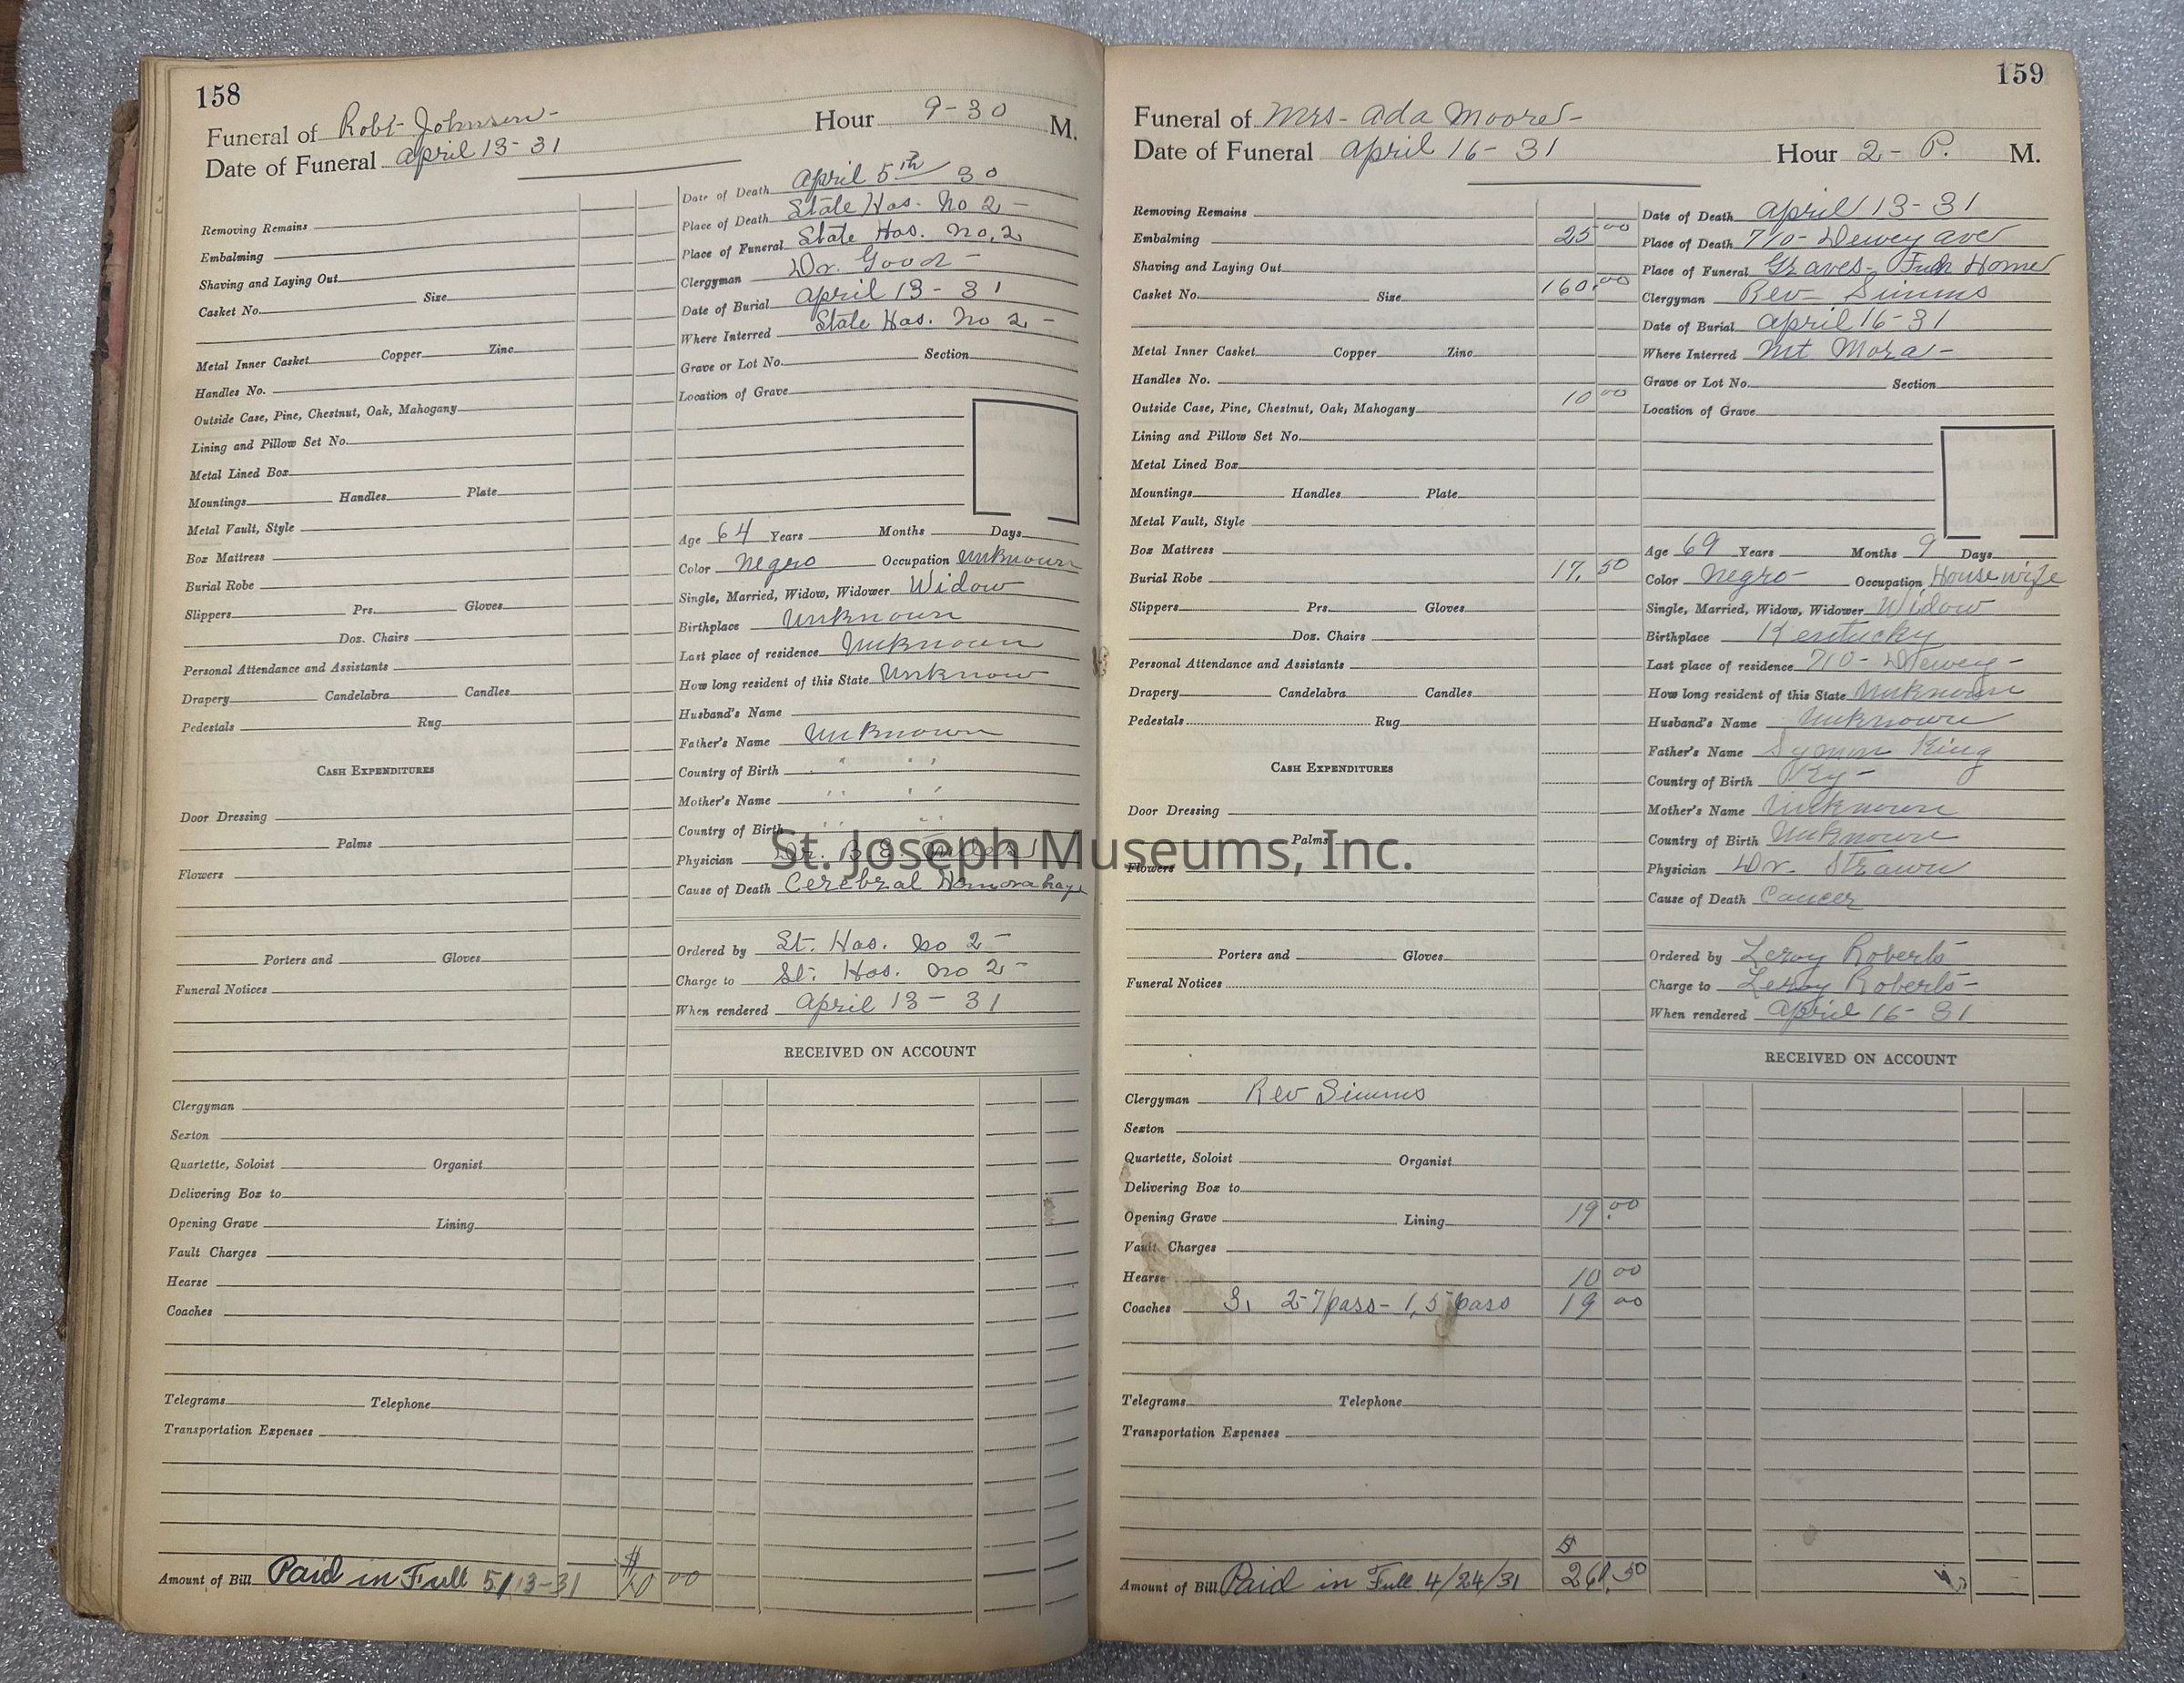 158
Funeral of Robt Johnson- Hour 9-30 M.
Date of Funeral April 13-31
Removing Remains
Embalming
Shaving and Laying Out
Casket No. Size
Metal Inner Casket Copper Zinc
Handles No.
Outside Case, Pine, Chestnut, Oak, Mahogany
Lining and Pillow Set No.
Metal Lined Box
Mountings Handles Plate
Metal Vault, Style
Box Mattress
Burial Robe
Slippers Prs. Gloves
Doz. Chairs
Personal Attendance and Assistants
Drapery Candelabra Candles
Pedestals Rug
CASH EXPENDITURES
Door Dressing
Palms
Flowers
Porters and Gloves
Funeral Notices
Clergyman
Sexton
Quartette, Soloist Organist
Delivering Box to
Opening Grave Lining
Vault Charges
Hearse
Coaches
Telegrams Telephone
Transportation Expenses
Amount of Bill Paid in Full 5/13-31 $ 20 00
Date of Death April 5th 30
Place of Death State Hos. No 2-
Place of Funeral State Hos. No. 2
Clergyman Dr. Good -
Date of Burial April 13-31
Where Interred State Hos. No 2-
Grave or Lot No. Section
Location of Grave
Age 64 Years Months Days
Color Negro Occupation Unknown
Single, Married, Widow, Widower Widow
Birthplace Unknown
Last place of residence Unknown
How long resident of this State Unknow
Husband's Name
Father's Name Unknown
Country of Birth " "
Mother's Name " "
Country of Birth " "
Physician Dr. B. E.
Cause of Death Cerebral Hemorahage
Ordered by St. Hos. No 2-
Charge to St. Hos. No 2-
When rendered April 13-31
RECEIVED ON ACCOUNT
159
Funeral of Mrs- Ada Moore-
Date of Funeral April 16-31 Hour 2-P. M.
Removing Remains
Embalming 25 00
Shaving and Laying Out
Casket No. Size 160.00
Metal Inner Casket Copper Zinc
Handles No.
Outside Case, Pine, Chestnut, Oak, Mahogany 10 00
Lining and Pillow Set No.
Metal Lined Box
Mountings Handles Plate
Metal Vault, Style
Box Mattress
Burial Robe 17.50
Slippers Prs. Gloves
Doz. Chairs
Personal Attendance and Assistants
Drapery Candelabra Candles
Pedestals Rug
CASH EXPENDITURES
Door Dressing
Palms
Flowers
Porters and Gloves
Funeral Notices
Clergyman Rev Simms
Sexton
Quartette, Soloist Organist
Delivering Box to
Opening Grave Lining 19.00
Vault Charges
Hearse 10 00
Coaches 3. 2-7 pass- 1, 5 pass 19 00
Telegrams Telephone
Transportation Expenses
Amount of Bill Paid in Full 4/24/31 $ 260.50
Date of Death April 13-31
Place of Death 710- Dewey Ave
Place of Funeral Graves- Home
Clergyman Rev- Simms
Date of Burial April 16-31
Where Interred Mt Mora-
Grave or Lot No. Section
Location of Grave
Age 69 Years Months 9 Days
Color Negro- Occupation Housewife
Single, Married, Widow, Widower Widow
Birthplace Kentucky
Last place of residence 710- Dewey-
How long resident of this State Unknown
Husband's Name Unknown
Father's Name King
Country of Birth Ky-
Mother's Name Unknown
Country of Birth Unknown
Physician Dr. Strawn
Cause of Death Cancer
Ordered by Leroy Roberts
Charge to Leroy Roberts-
When rendered April 16-31
RECEIVED ON ACCOUNT
St. Joseph Museums, Inc.